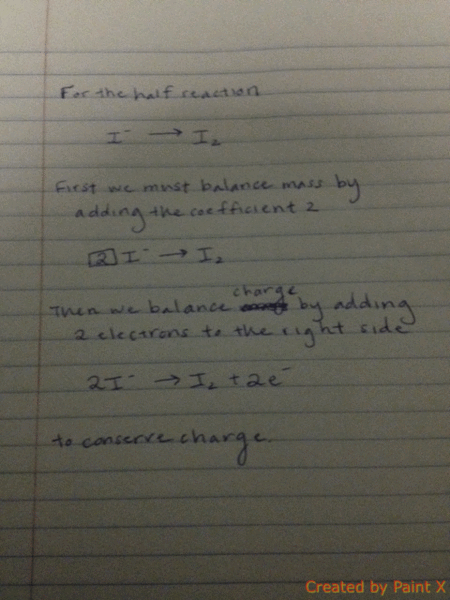 For the half reaction
I⁻ → I₂
First we must balance mass by
adding the coefficient 2
2 I⁻ → I₂
Then we balance charge by adding
2 electrons to the right side
2I⁻ → I₂ + 2e⁻
to conserve charge.
Created by Paint X